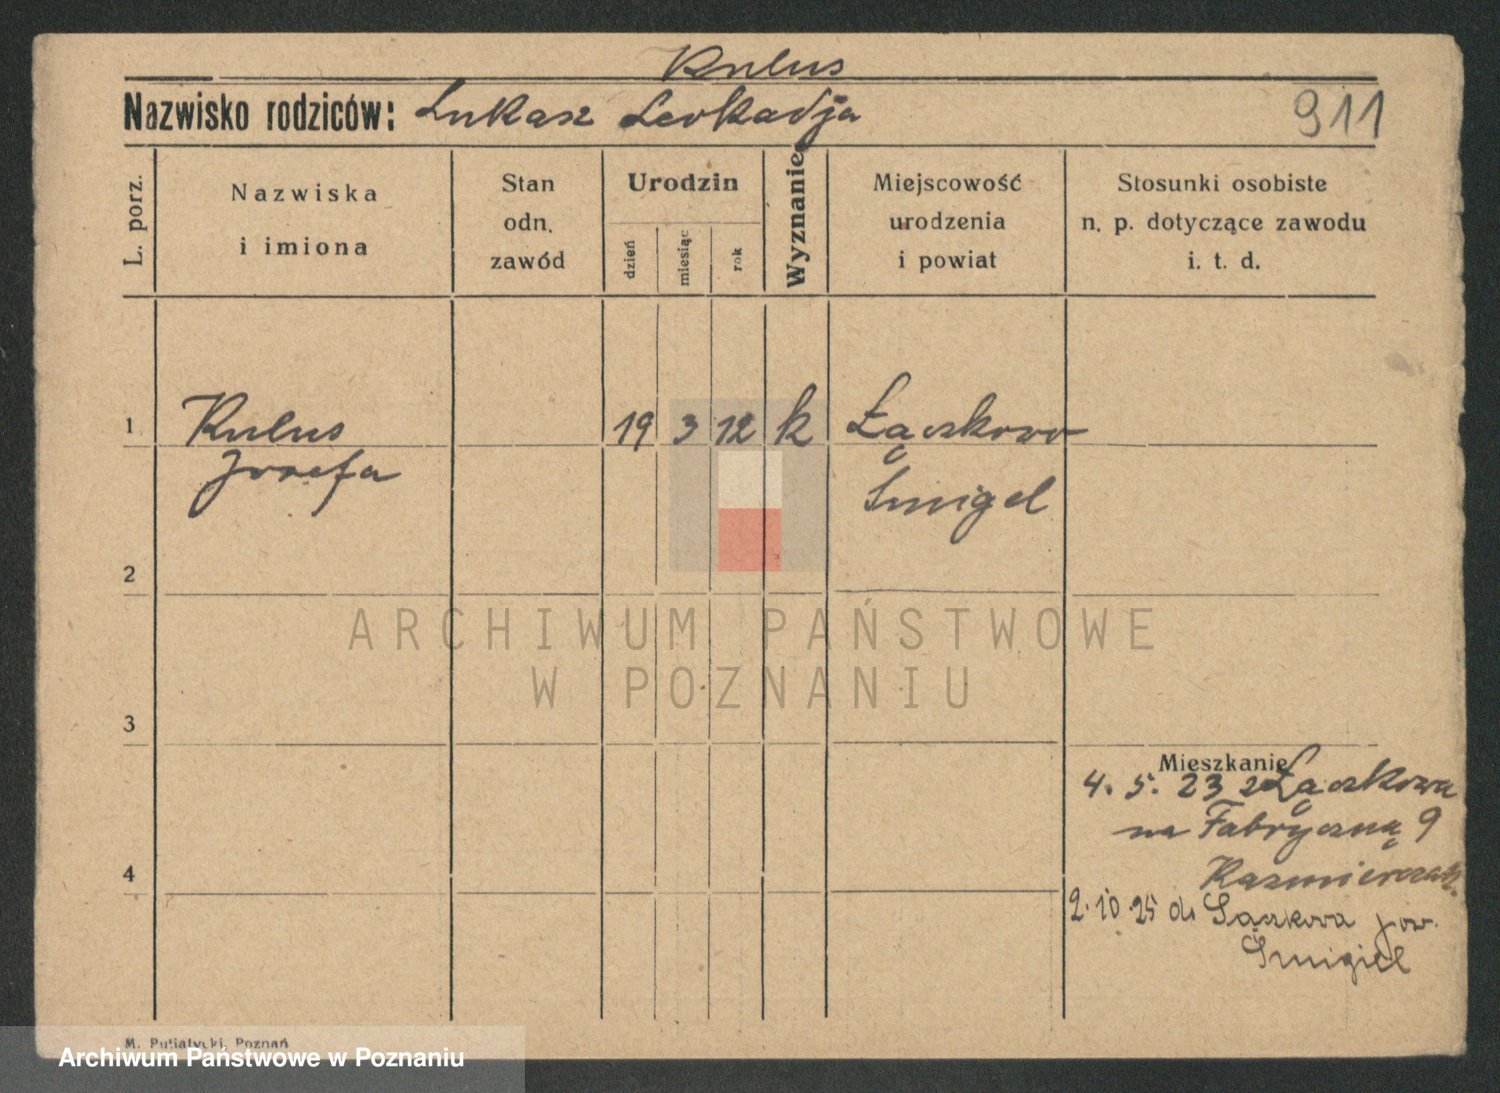 Kulus
Nazwisko rodziców: Łukasz Leokadja
911
L. porz.
Nazwiska
i imiona
Stan
odn.
zawód
Urodzin
dzień
miesiąc
rok
Wyznanie
Miejscowość
urodzenia
i powiat
Stosunki osobiste
n. p. dotyczące zawodu
i. t. d.
1 Kulus 19 3 12 k Łączkowo
Jozefa Śmigel
2
3
Mieszkanie
4. 5. 23 z Łączkowa
na Fabryczną 9
4
Kazmierczak.
2.10.25 do Łączkova pow.
Śmigiel
M. Putiatycki, Poznań
ARCHIWUM PAŃSTWOWE
W POZNANIU
Archiwum Państwowe w Poznaniu